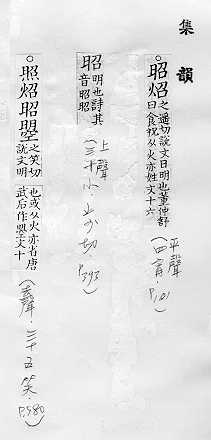 集韻
○昭炤之遙切說文日明也董仲舒
曰食祝从火亦姓文十六
平聲
(四宵·P.181)
昭明也詩其
音昭昭
上聲
(三十小·止少切
P.393)
○照炤昭曌之笑切
說文明
也或从火亦省唐
武后作曌文十
(去聲·三十五笑
P.580)